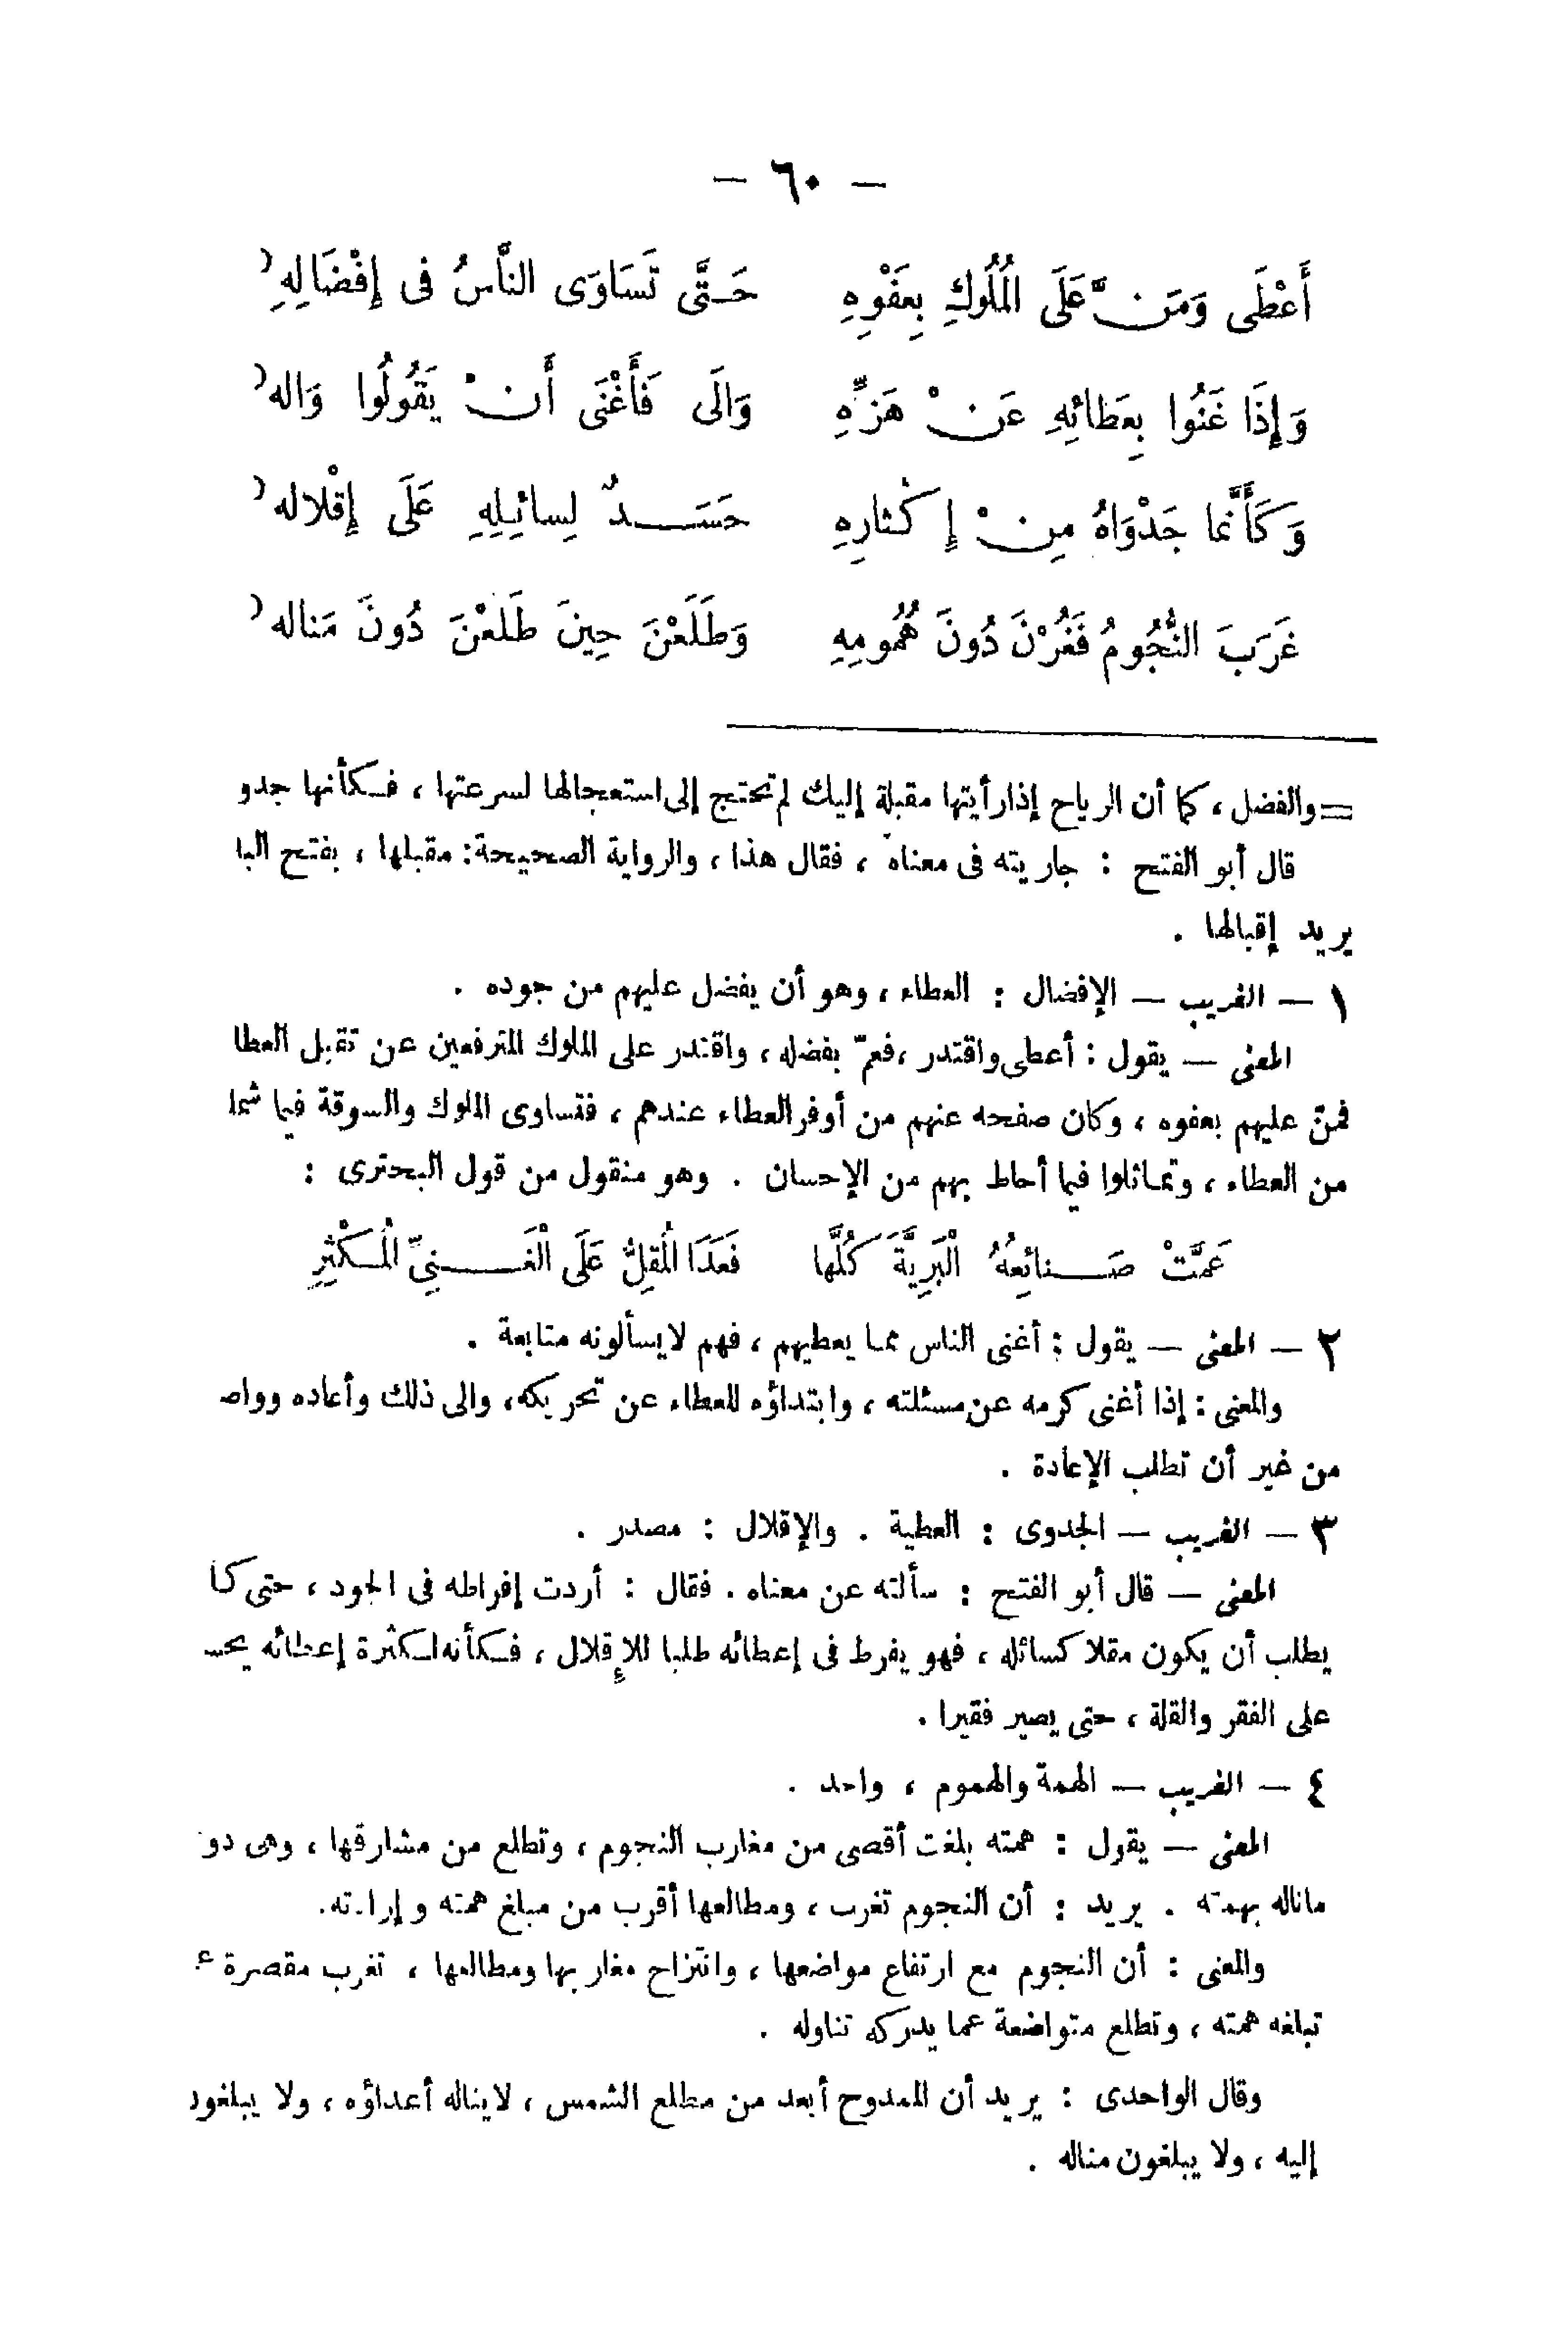 — ٦٠ —
أَعْطَى وَمَنَّ عَلَى الْمُلُوكِ بِعَفْوِهِ حَتَّى تَسَاوَى النَّاسُ فى إِفْضَالِهِ
وَإِذَا غَنُوا بِعَطائِهِ عَنْ هَزِّهِ وَالَى فَأَغْنَى أَنْ يَقُولُوا وَاله
وَكَأَنَّما جَدْوَاهُ مِنْ إِكْثارِهِ حَسَدٌ لِسائِلِهِ عَلَى إِقْلاله
غَرَبَ النُّجُومُ فَغُرْنَ دُونَ هُمُومِهِ وَطَلَعْنَ حِينَ طَلَعْنَ دُونَ مَناله
=والفضل ، كما أن الرياح إذا رأيتها مقبلة إليك لم تحتج إلى استعجالها لسرعتها ، فكأنها جدو
قال أبو الفتح : جاريته فى معناه ، فقال هذا ، والرواية الصحيحة: مقبلها ، بفتح البا
يريد إقبالها .
١ — الغريب — الإفضال : العطاء ، وهو أن يفضل عليهم من جوده .
المعنى — يقول : أعطى واقتدر ، فعمّ بفضله ، واقتدر على الملوك المترفعين عن تقبل العطا
فمنّ عليهم بعفوه ، وكان صفحه عنهم من أوفر العطاء عندهم ، فتساوى الملوك والسوقة فيما شما
من العطاء ، وتماثلوا فيما أحاط بهم من الإحسان . وهو منقول من قول البحترى :
عَمَّتْ صَنائِعُهُ الْبَرِيَّةَ كُلَّها فَعَدَا الْمُقِلُّ عَلَى الْغَنِىِّ الْمُكْثِرِ
٢ — المعنى — يقول : أغنى الناس مما يعطيهم ، فهم لا يسألونه متابعة .
والمعنى : إذا أغنى كرمه عن مسئلته ، وابتداؤه للعطاء عن تحريكه، والى ذلك وأعاده وواصـ
من غير أن تطلب الإعادة .
٣ — الغريب — الجدوى : العطية . والإقلال : مصدر .
المعنى — قال أبو الفتح : سألته عن معناه . فقال : أردت إفراطه فى الجود ، حتى كـا
يطلب أن يكون مقلا كسائله ، فهو يفرط فى إعطائه طلبا للإقلال ، فكأنه لكثرة إعطائه يحسـ
على الفقر والقلة ، حتى يصير فقيرا .
٤ — الغريب — الهمة والهموم ، واحد .
المعنى — يقول : همته بلغت أقصى من مغارب النجوم ، وتطلع من مشارقها ، وهى دو
ماناله بهمته . يريد : أن النجوم تغرب ، ومطالعها أقرب من مبلغ همته وإرادته.
والمعنى : أن النجوم مع ارتفاع مواضعها ، وانتزاح مغاربها ومطالعها ، تغرب مقصرة عـ
تبلغه همته ، وتطلع متواضعة عما يدركه تناوله .
وقال الواحدى : يريد أن الممدوح أبعد من مطلع الشمس ، لا يناله أعداؤه ، ولا يبلغو
إليه ، ولا يبلغون مناله .